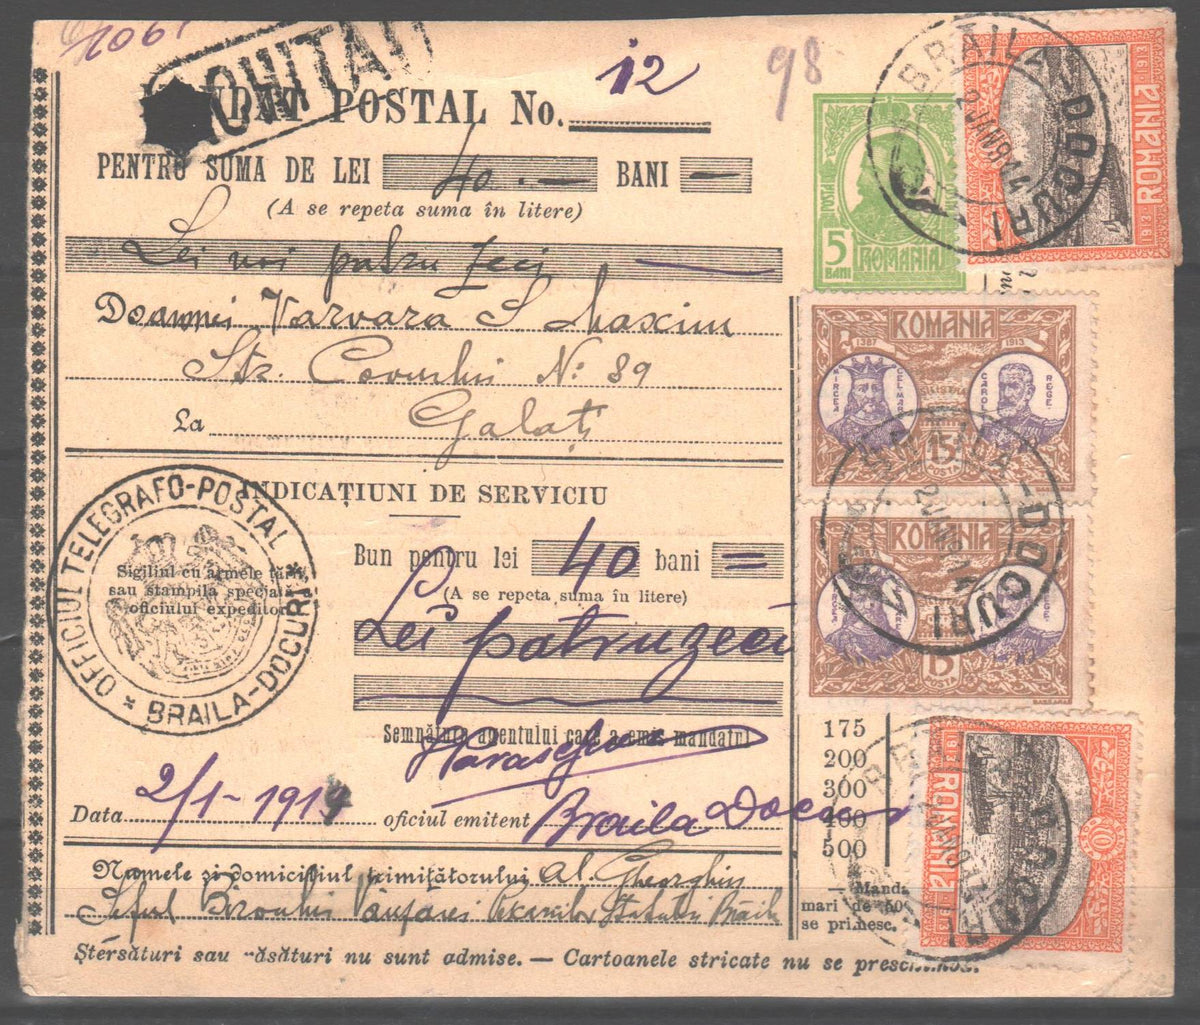 ACHITAT
MANDAT POSTAL No. 12
98
PENTRU SUMA DE LEI 40.— BANI —
(A se repeta suma în litere)
Lei noi patru zeci
Doamnei Varvara S Maxim
Str. Covurlui No: 89
La Galați
INDICAȚIUNI DE SERVICIU
OFICIUL TELEGRAFO-POSTAL
* BRAILA-DOCURI *
Sigiliul cu armele țării,
sau stampila specială a
oficiului expeditor
Bun pentru lei 40 bani =
(A se repeta suma în litere)
Lei patruzeci
Semnătura agentului care a emis mandatul
Data 2/1-1914 oficiul emitent Braila Docuri
Numele și domiciliul trimițătorului Al. Gheorghiu
Șeful Biroului Vânzarei Statului Brăila
Ștersături sau răsături nu sunt admise. — Cartoanele stricate nu se preschimbă.
POSTA
ROMANIA
5
BANI
BRAILA-DOCURI
2 IAN 914
1913 ROMANIA 1913
ROMANIA
1387 1913
MIRCEA CEL MARE
CAROL REGE
SILISTRA
15
BRAILA-DOCURI
2 IAN 914
ROMANIA
15
175
200
300
400
500
— Manda
mari de 50
se primesc.
BRAILA DOCURI
1913 ROMANIA
10